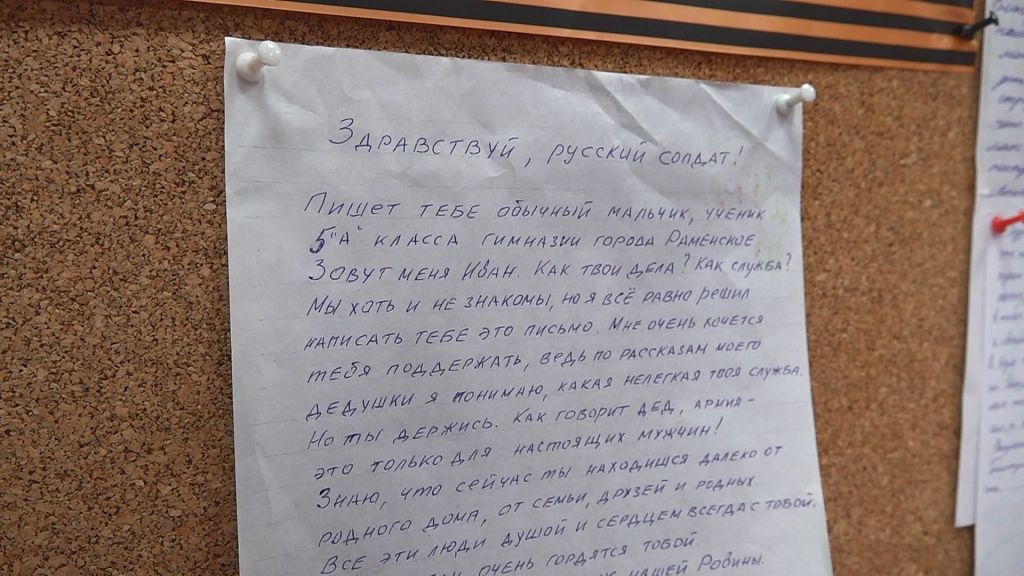 Здравствуй, русский солдат!
Пишет тебе обычный мальчик, ученик
5 "А" класса гимназии города Раменское.
Зовут меня Иван. Как твои дела? Как служба?
Мы хоть и не знакомы, но я всё равно решил
написать тебе это письмо. Мне очень хочется
тебя поддержать, ведь по рассказам моего
дедушки я понимаю, какая нелегкая твоя служба.
Но ты держись. Как говорит дед, армия -
это только для настоящих мужчин!
Знаю, что сейчас ты находишся далеко от
родного дома, от семьи, друзей и родных.
Все эти люди душой и сердцем всегда с тобой.
очень гордятся тобой.
нашей Родины.